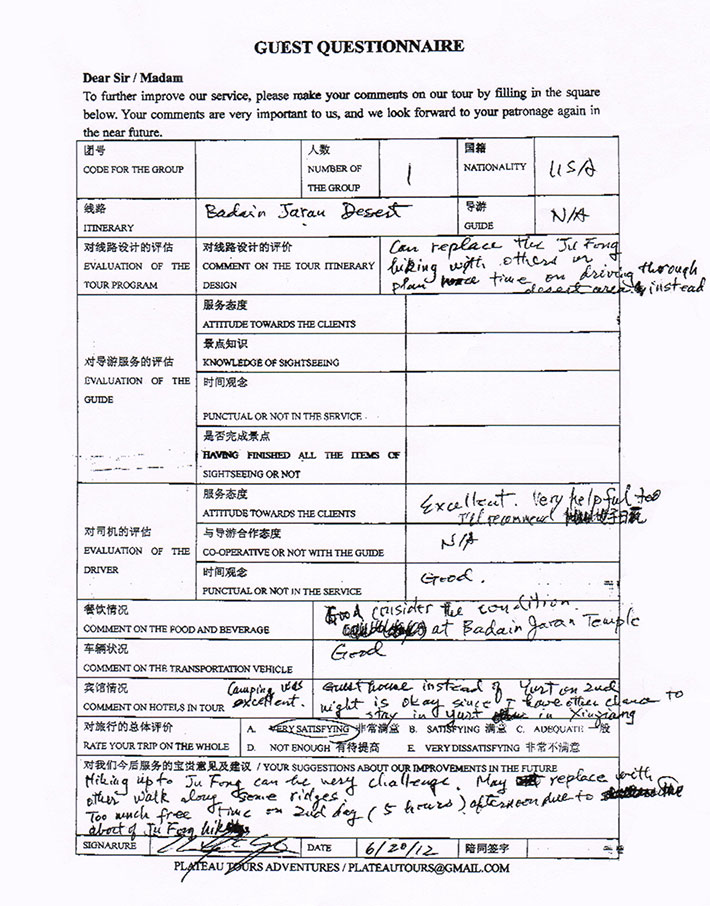 GUEST QUESTIONNAIRE
Dear Sir / Madam
To further improve our service, please make your comments on our tour by filling in the square
below. Your comments are very important to us, and we look forward to your patronage again in
the near future.
团号
CODE FOR THE GROUP
人数
NUMBER OF
THE GROUP
1
国籍
NATIONALITY
USA
线路
ITINERARY
Badain Jaran Desert
导游
GUIDE
N/A
对线路设计的评估
EVALUATION OF THE
TOUR PROGRAM
对线路设计的评价
COMMENT ON THE TOUR ITINERARY
DESIGN
Can replace the Ju Fong
hiking with others or
plan time on driving through
desert area instead
对导游服务的评估
EVALUATION OF THE
GUIDE
服务态度
ATTITUDE TOWARDS THE CLIENTS
景点知识
KNOWLEDGE OF SIGHTSEEING
时间观念
PUNCTUAL OR NOT IN THE SERVICE
是否完成景点
HAVING FINISHED ALL THE ITEMS OF
SIGHTSEEING OR NOT
对司机的评估
EVALUATION OF THE
DRIVER
服务态度
ATTITUDE TOWARDS THE CLIENTS
Excellent. Very helpful too
I'll recommend
与导游合作态度
CO-OPERATIVE OR NOT WITH THE GUIDE
N/A
时间观念
PUNCTUAL OR NOT IN THE SERVICE
Good.
餐饮情况
COMMENT ON THE FOOD AND BEVERAGE
Good consider the condition.
at Badain Jaran Temple
车辆状况
COMMENT ON THE TRANSPORTATION VEHICLE
Good
宾馆情况
COMMENT ON HOTELS IN TOUR
Camping was
excellent.
Guesthouse instead of Yurt on 2nd
night is okay since I have other chance to
stay in Yurt in Xinjiang
对旅行的总体评价
RATE YOUR TRIP ON THE WHOLE
A. VERY SATISFYING 非常满意 B. SATISFYING 满意 C. ADEQUATE 一般
D. NOT ENOUGH 有待提高 E. VERY DISSATISFYING 非常不满意
对我们今后服务的宝贵意见及建议 / YOUR SUGGESTIONS ABOUT OUR IMPROVEMENTS IN THE FUTURE
Hiking up to Ju Fong can be very challenge. May replace with
other walk along some ridges
Too much free time on 2nd day (5 hours) afternoon due to the
abort of Ju Fong hike
SIGNARURE
DATE
6/20/12
陪同签字
PLATEAU TOURS ADVENTURES / PLATEAUTOURS@GMAIL.COM